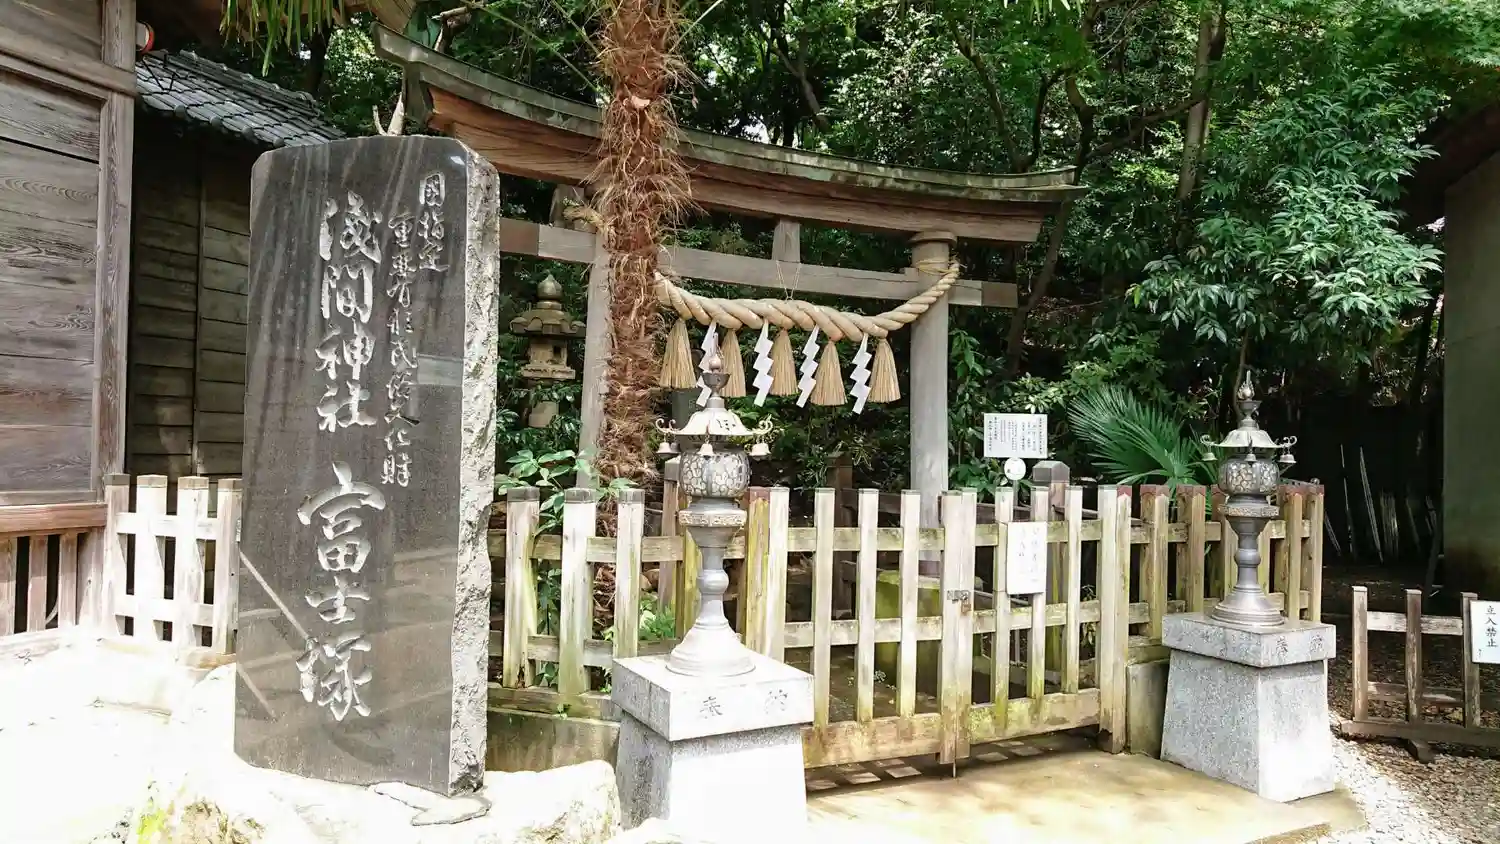 国指定
重要有形民俗文化財
浅間神社 富士塚
奉
納
奉
納
立入禁止